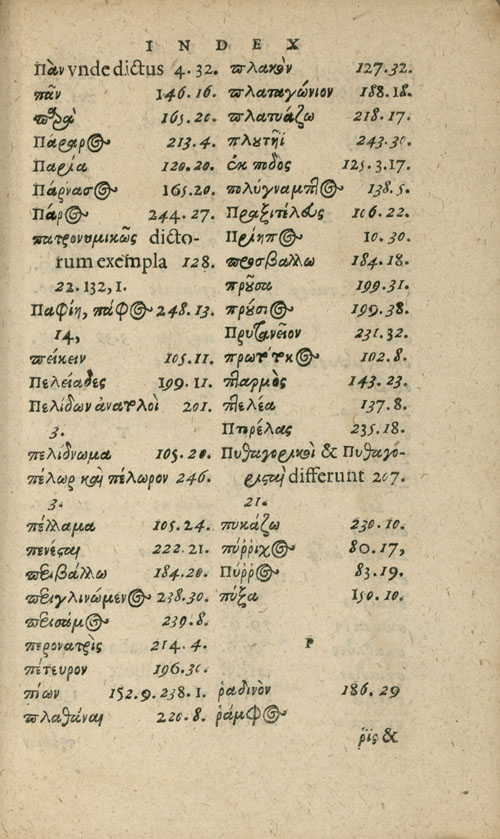 INDEX
Πὰν vnde dictus 4.32.
πᾶν 146.16.
165.20.
Πάραρος 213.4.
Παρία 120.20.
Πάρνασος 165.20.
Πάρος 244.27.
πατρονυμικῶς dicto-
rum exempla 128.
22.132,1.
Παφίη, πάφος 248.13.
14,
πείκειν 105.11.
Πελειάδες 199.11.
Πελίδων ἀνατολοὶ 201.
3.
πελιδνωμα 105.20.
πέλωρ καὶ πέλωρον 246.
3.
πέλλαμα 105.24.
πενέσται 222.21.
περιβάλλω 184.20.
περιγλινώμενος 238.30.
239.8.
περονατρὶς 214.4.
πέτευρον 196.30.
πίων 152.9.238.1.
πλαθάναι 220.8.
πλακοῦν 127.32.
πλαταγώνιον 188.18.
πλατυάζω 218.17.
πλυτῆϊ 243.30.
ἐκ ποδος 125.3.17.
πολύγναμπτος 138.5.
Πραξιτέλους 106.22.
Πρίηπος 10.30.
προσβάλλω 184.18.
πρῦσα 199.31.
πρύσις 199.38.
Πρυτανεῖον 231.32.
102.8.
πταρμὸς 143.23.
πτελέα 137.8.
Πτερέλας 235.18.
Πυθαγορικοὶ & Πυθαγο-
ρισταὶ differunt 207.
21.
πυκάζω 230.10.
πύῤῥιχος 80.17,
Πυῤῥος 83.19.
πύξα 150.10.
Ρ
ῥαδινὸν 186.29
ῥάμφος
ῥῖς &